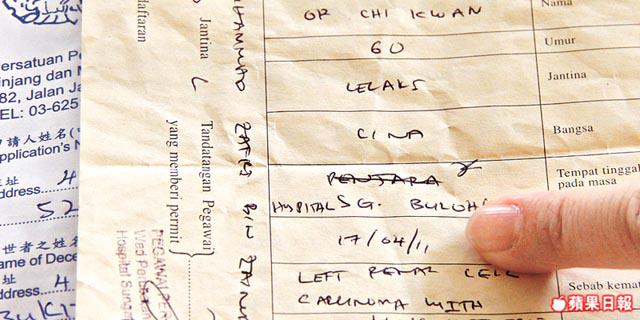 OR CHI KWAN
Nama
60
Umur
LELAKI
Jantina
CINA
Bangsa
PENJARA
HOSPITAL SG. BULOH
Tempat tinggal
pada masa
17/04/11
LEFT RENAL CELL
CARCINOMA WITH
Sebab kemat
daftaran
Jantina
L
Tandatangan Pegawai
yang memberi permit
ZAFRI BIN
Hospital Sunga
ersatuan Pe
injang dan M
82, Jalan Ja
EL: 03-625
請人姓名
pplication's N
址
ddress
4
52
世者之姓名
ame of Dece
址
ddress
4
蘋果日報